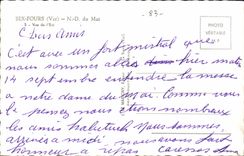 SIX-FOURS (Var) — N.-D. du Mai
- 83 -
Chers Amis
C'est avec un fort mistral que
nous sommes allés hier
14 septembre entendre la messe
à notre dame du Mai. Comme vous
le pensez nous étions nombreux
les amis habituels Nous sommes
arrivés à midi nous avons fait
honneur a repas
PHOTO
VÉRITABLE